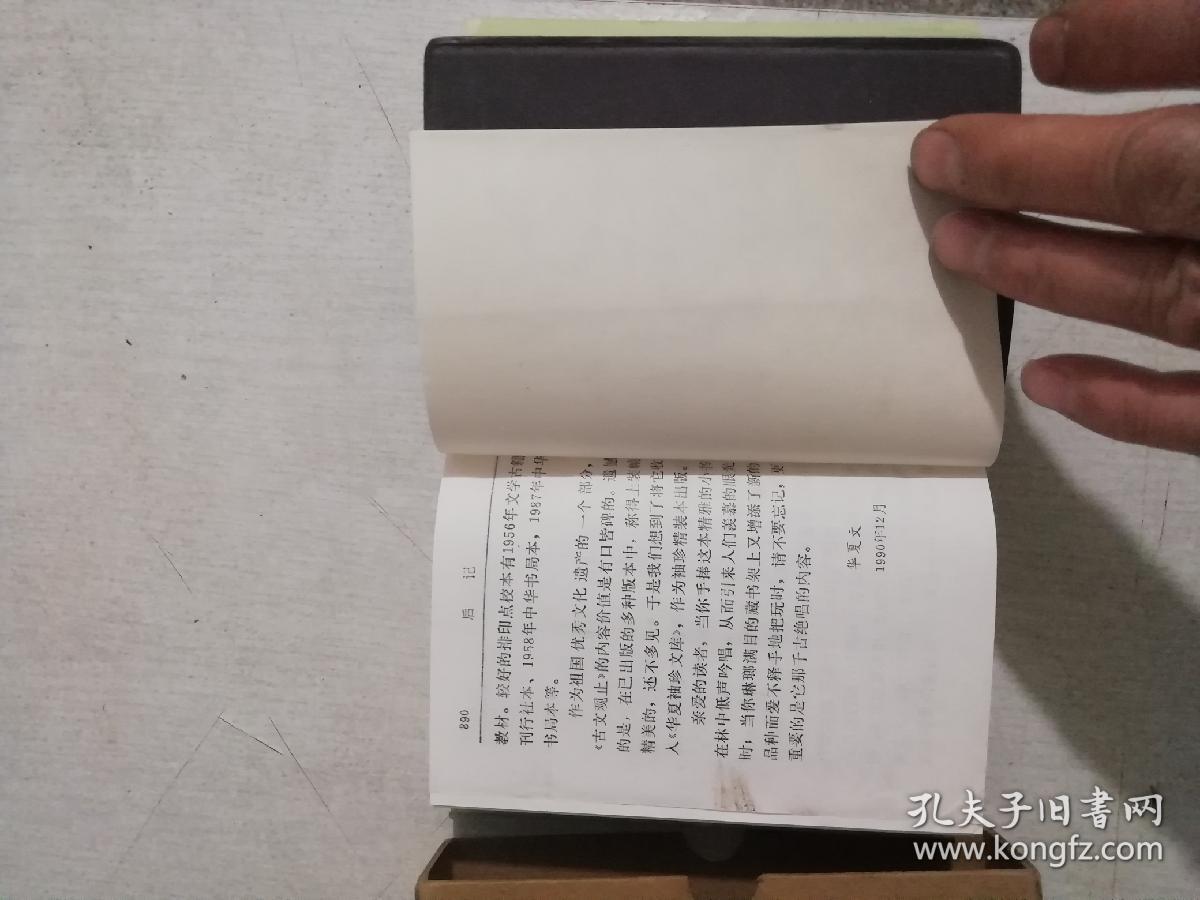 890
后 记
教材。较好的排印点校本有1956年文学古籍
刊行社本、1958年中华书局本，1987年中华
书局本等。
作为祖国优秀文化遗产的一个部分，
《古文观止》的内容价值是有口皆碑的。遗憾
的是，在已出版的多种版本中，称得上装帧
精美的，还不多见。于是我们想到了将它收
入《华夏袖珍文库》，作为袖珍精装本出版。
亲爱的读者，当你手捧这本精雅的小书
在林中低声吟唱，从而引来人们羡慕的眼光
时；当你琳琅满目的藏书架上又增添了新的
品种而爱不释手地把玩时，请不要忘记，更
重要的是它那千古绝唱的内容。
华夏文
1990年12月
孔夫子旧书网
www.kongfz.com